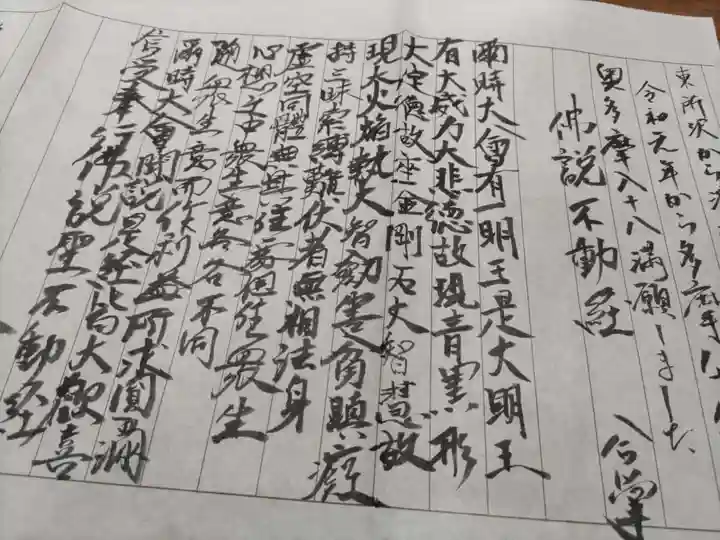 東所沢から
令和元年から多摩
奥多摩八十八満願しました
仏説不動経 合掌
爾時大會有一明王是大明王
有大威力大悲徳故現青黒形
大定徳故座金剛石大智慧故
現大火焔執大智劔害貪瞋癡
持三昧索縛難伏者無相法身
虚空同體無其住處但住衆生
心想之中衆生意各各不同
随衆生意而作利益所求圓満
爾時大會聞説是経皆大歓喜
信受奉行 仏説聖不動経